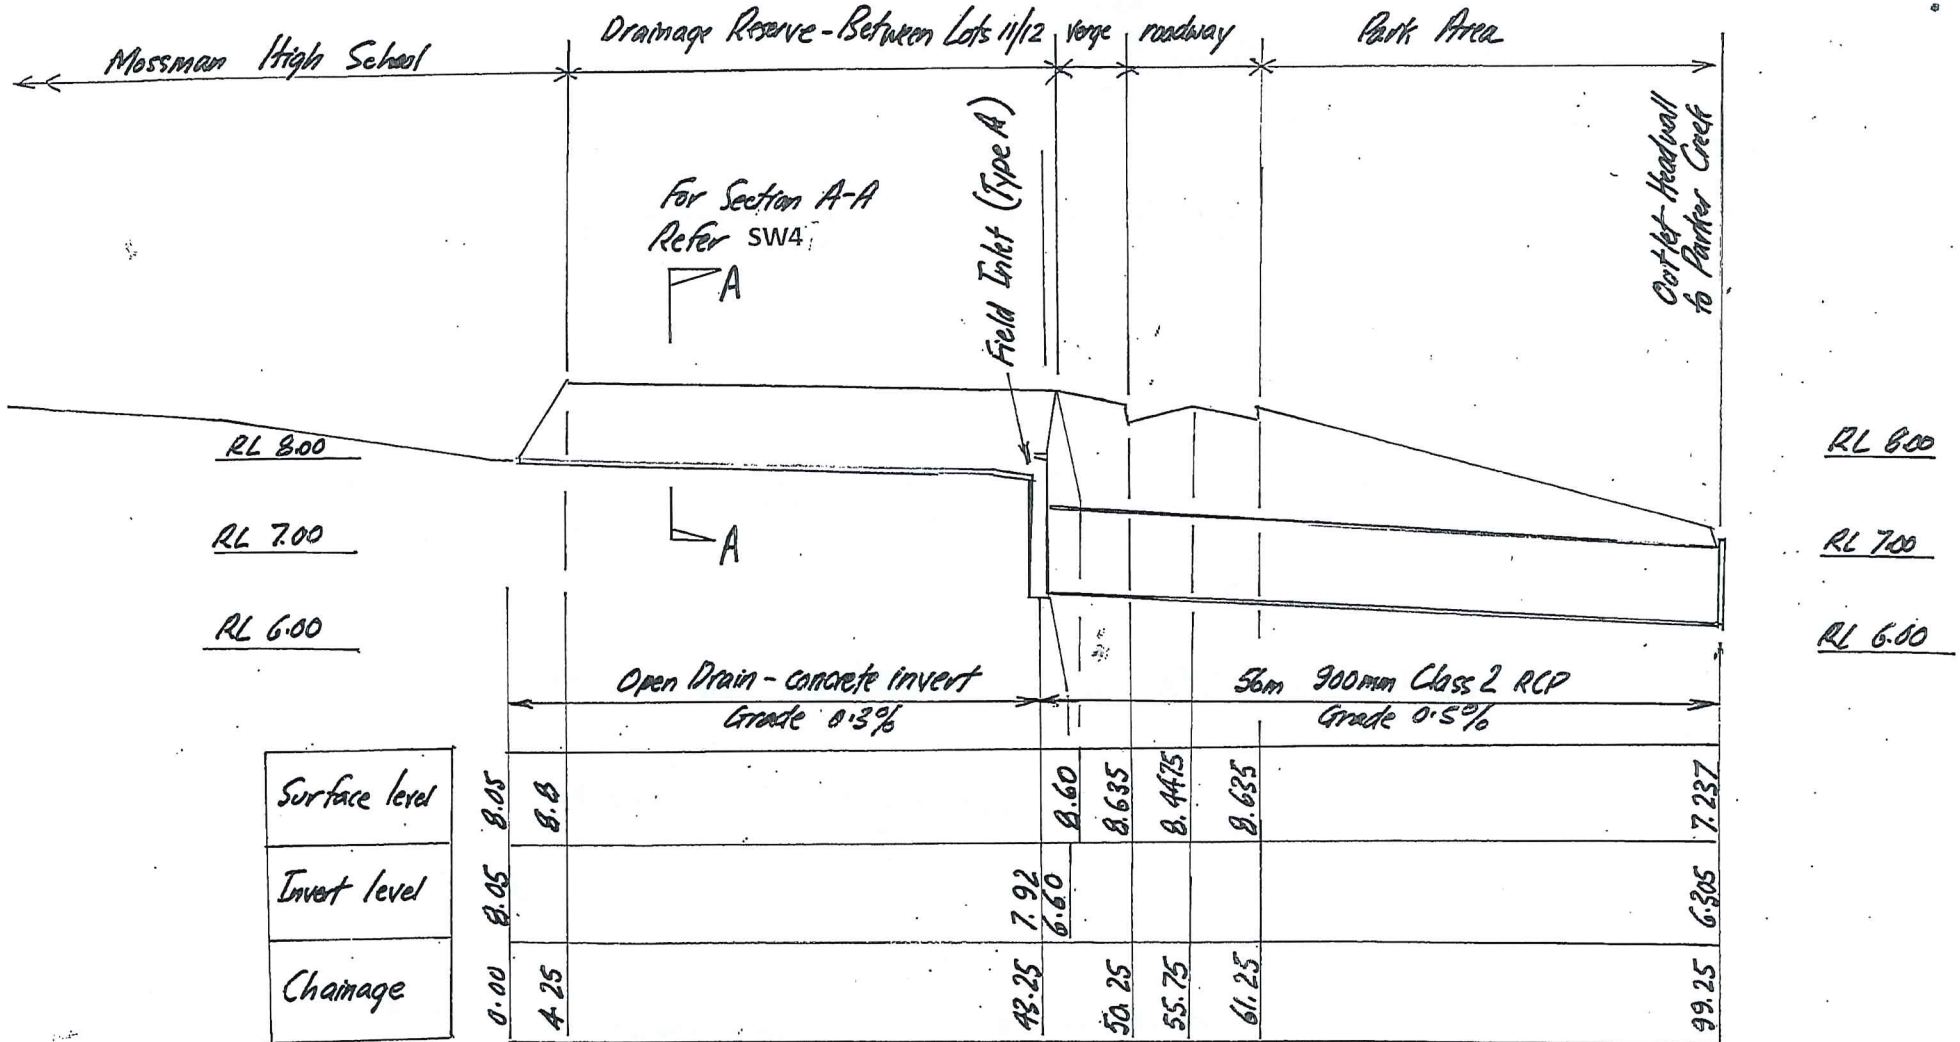 Mossman High School
Drainage Reserve - Between Lots 11/12
verge
roadway
Park Area
Field Inlet (Type A)
Outlet Headwall
to Parker Creek
For Section A-A
Refer SW4
A
A
RL 8.00
RL 7.00
RL 6.00
RL 8.00
RL 7.00
RL 6.00
Open Drain - concrete invert
Grade 0.3%
56m 900mm Class 2 RCP
Grade 0.5%
Surface level 8.05 8.8 8.60 8.635 8.4475 8.635 7.237
Invert level 8.05 7.92 6.60 6.305
Chainage 0.00 4.25 43.25 50.25 55.75 61.25 99.25